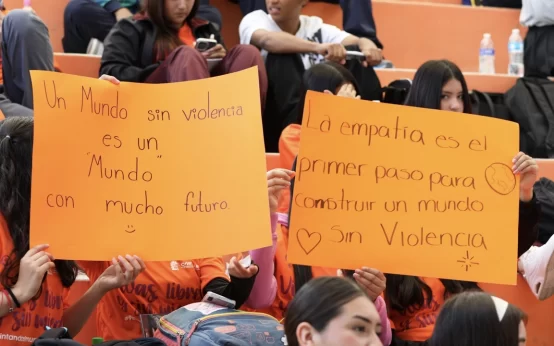 Un Mundo sin violencia
es un
"Mundo"
con mucho futuro.
La empatía es el
primer paso para
construir un mundo
Sin Violencia